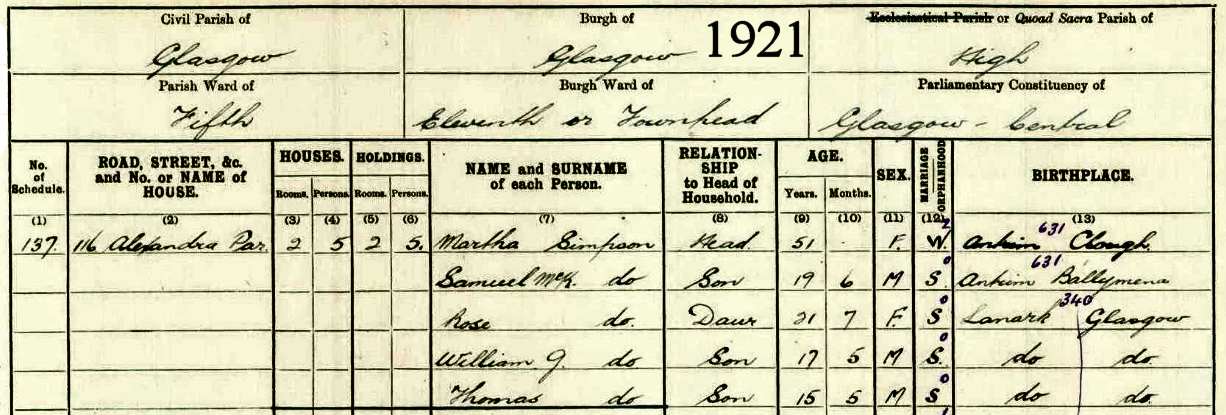 Civil Parish of Burgh of 1921 Ecclesiastical Parish or Quoad Sacra Parish of
Glasgow Glasgow High
Parish Ward of Burgh Ward of Parliamentary Constituency of
Fifth Eleventh or Townhead Glasgow - Central
No. of Schedule. ROAD, STREET, &c. and No. or NAME of HOUSE. HOUSES. Rooms. Persons. HOLDINGS. Rooms. Persons. NAME and SURNAME of each Person. RELATION-SHIP to Head of Household. AGE. Years. Months. SEX. MARRIAGE or ORPHANHOOD BIRTHPLACE.
(1) (2) (3) (4) (5) (6) (7) (8) (9) (10) (11) (12) (13)
137. 116 Alexandra Par. 2 5 2 5. Martha Simpson Head 51 - F. W. 2 Antrim 631 Clough.
Samuel McK. do Son 19 6 M S. 0 Antrim 631 Ballymena
Rose do. Daur 21 7 F. S 0 Lanark 340 Glasgow
William J. do Son 17 5 M S. 0 do do.
Thomas do Son 15 5 M S 0 do do.